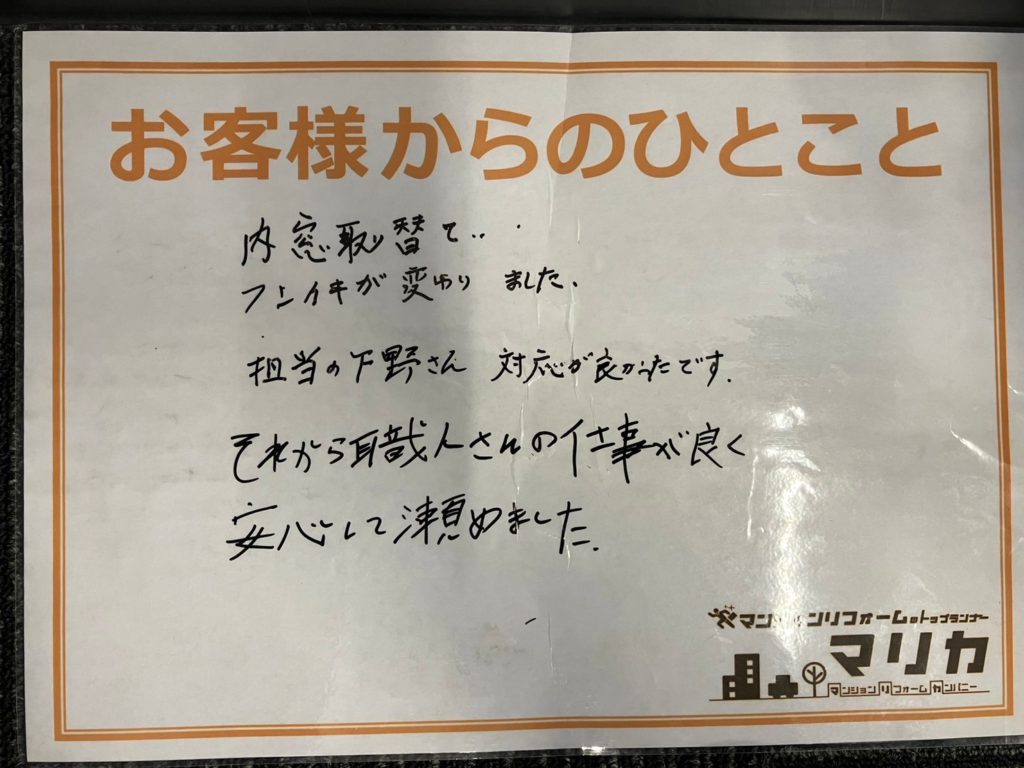 お客様からのひとこと
内窓取り替て..
フンイキが変わりました.
担当の下野さん 対応が良かったです.
それから職人さんの仕事が良く
安心して頼めました.
マンションリフォームのトップランナー
マリカ
マンションリフォームカンパニー